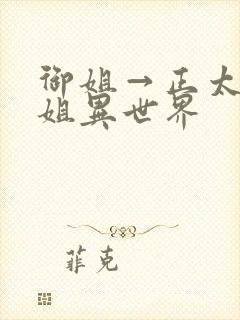 御姐→正太
姐異世界
菲克